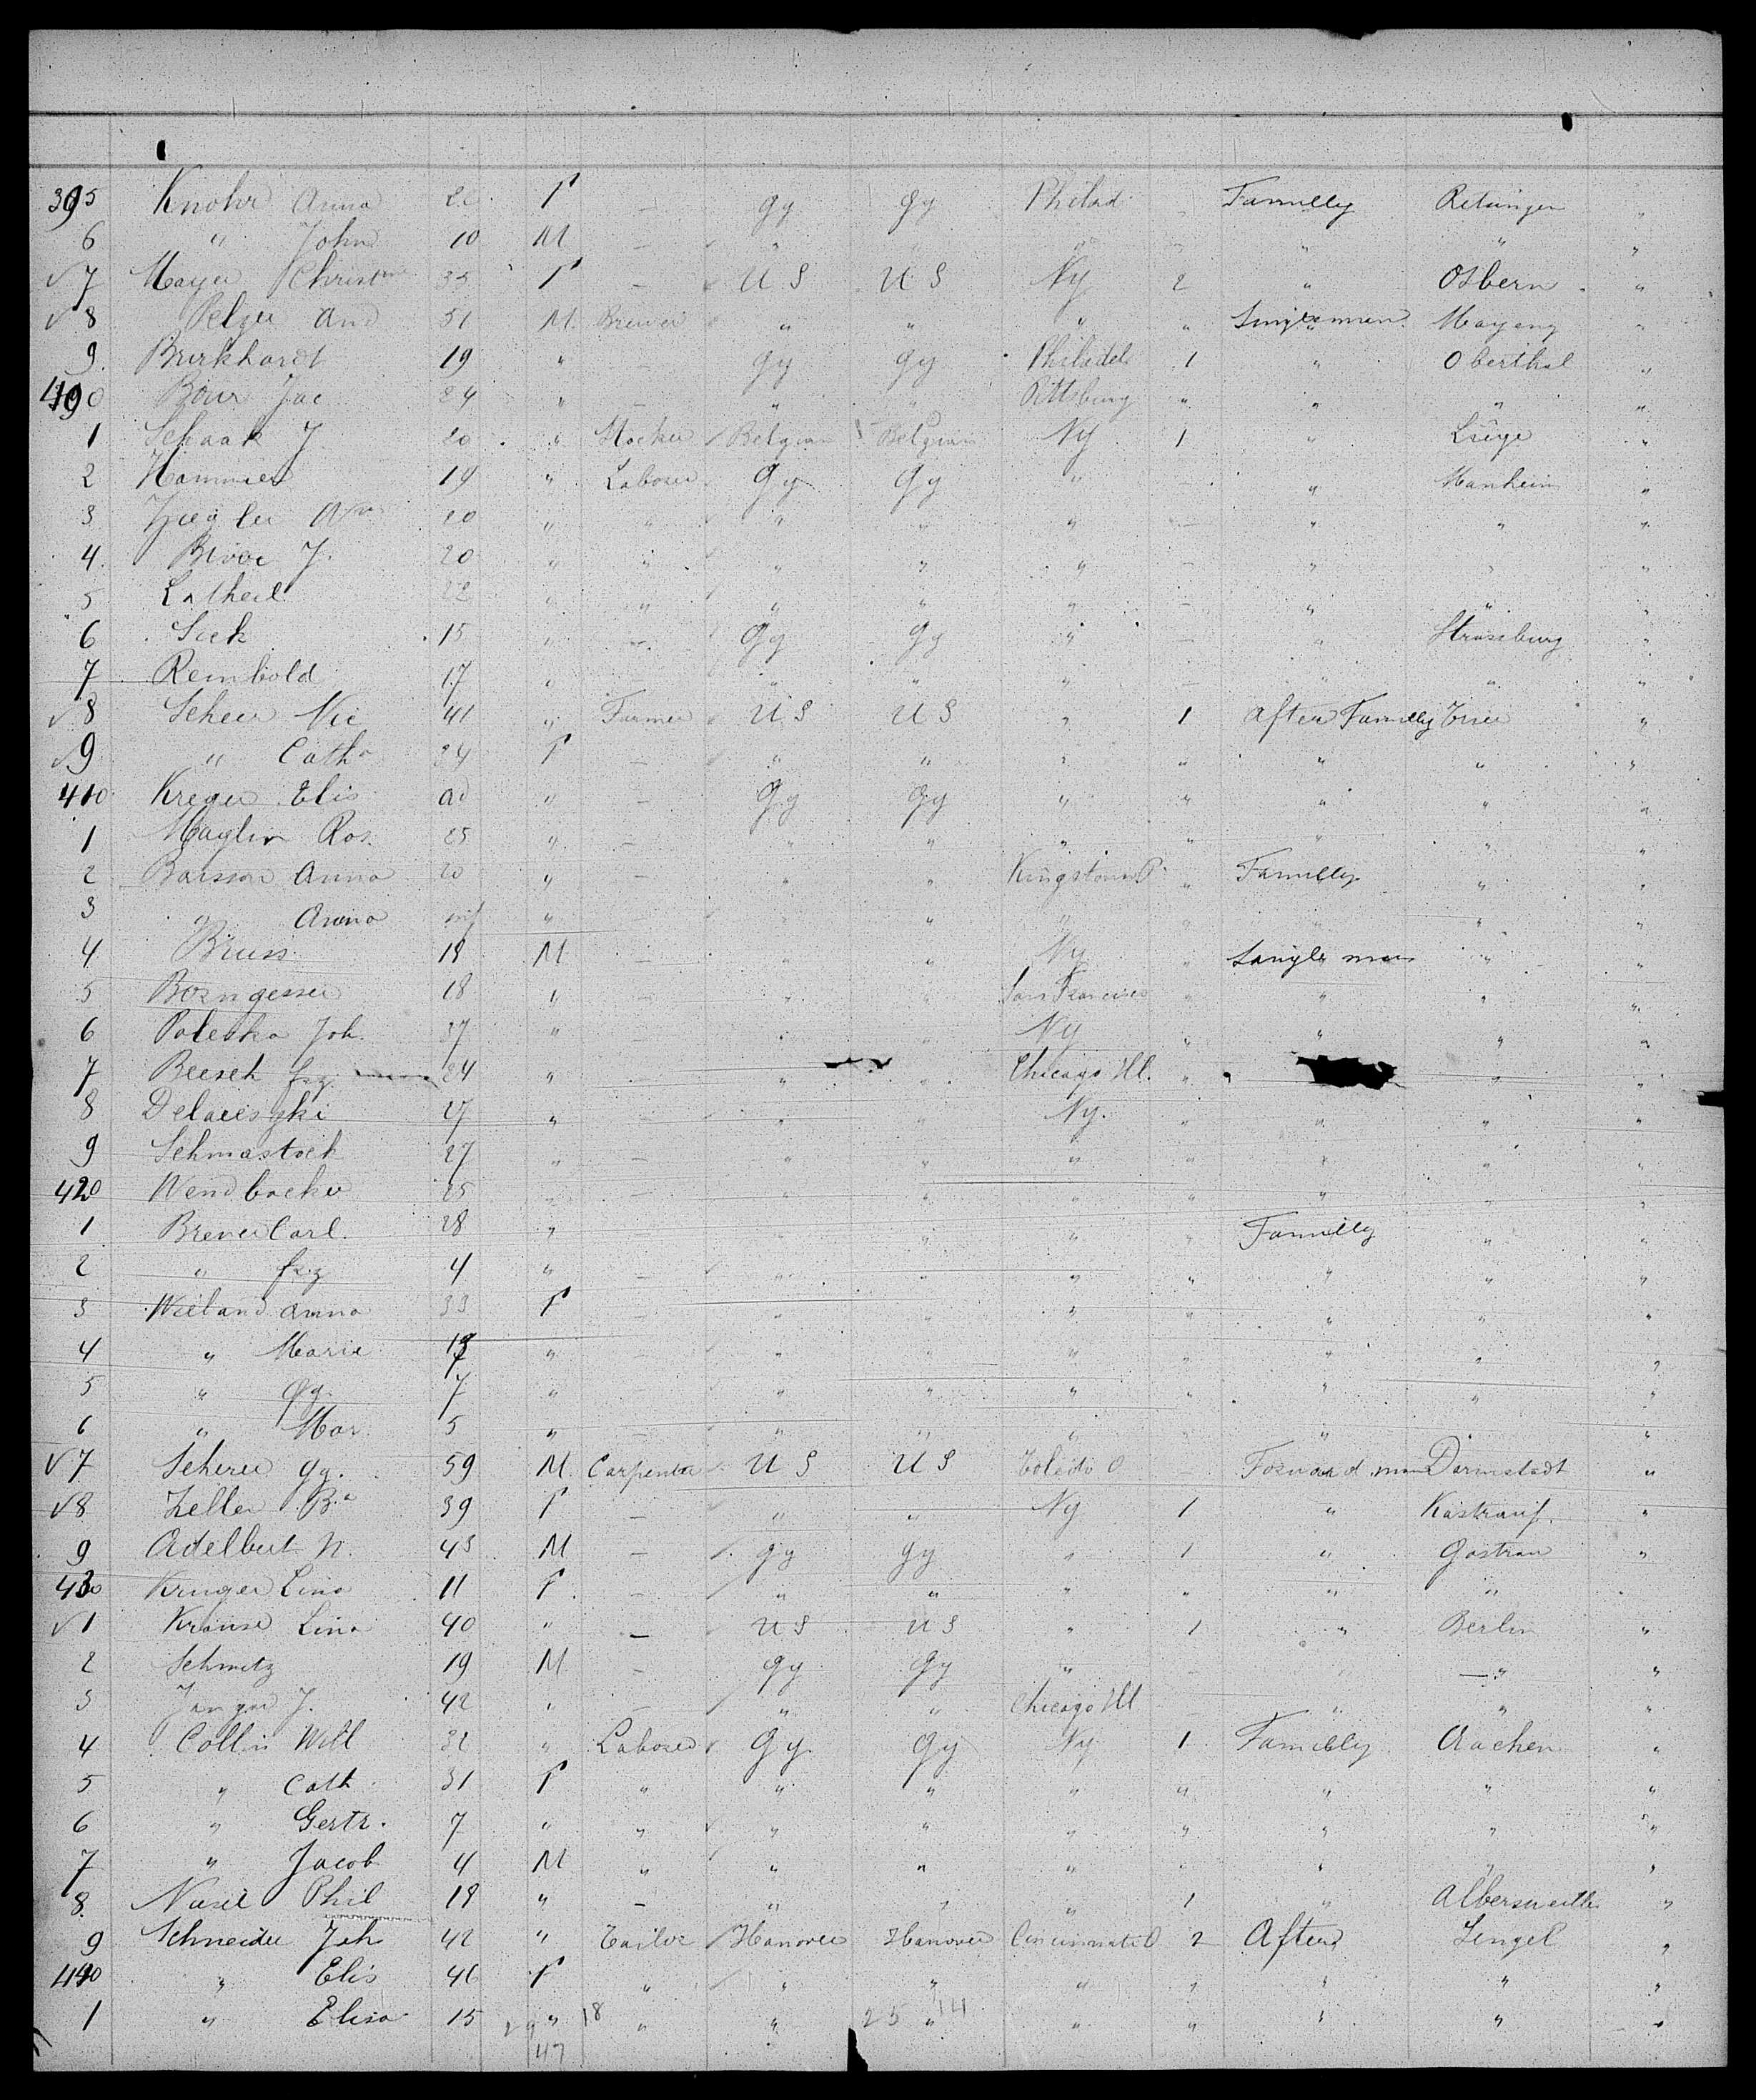 395 Knohr Anna 2 F — Gy Gy Philad. — Familly Retsingen "
6 " John 10 M — " " " — " " "
√7 Mayer Christ 35 F — U S U S Ny 2 " Osbern "
√8 Pelzer And 51 M. Brewer " " " " Singleman Mayeng "
9. Burkhardt 19 " — Gy Gy Philadel. 1 " Oberthal "
400 Bour Jac 24 " — " " Pittsburg " " " "
1 Schaak J. 20 " Stocker Belgian Belgian Ny 1 " Liége "
2 Hammer 19 " Laborer Gy Gy " — " Manheim "
3 Ziegler 20 " " " " " — " " "
4. J. 20 " " " " " — " " "
5 Latheil 22 " " " " " — " " "
6 Sick 15 " — Gy Gy " — " Strassburg "
7 Reinbold 17 " " " " — " " "
√8 Scheer Nic 41 " Farmer U S U S " 1 After Familly Trier "
√9 " Cath 34 F — " " " " " " "
410 Kreger Elis ad " — Gy Gy " " " " "
1 Maglin Ros. 25 " — " " " " " " "
2 Anna 20 " — " " Kingstown P " Familly " "
3 " Anna inf " " " " " " " "
4 Bruss 19 M — " " Ny " Single man " "
5 Borngesser 18 " — " " San Francisco " " " "
6 Poleska Joh. 37 " " " Ny " " " "
7 Beesch frz. 24 " " " Chicago Ill. " " "
8 27 " " " Ny. " " " "
9 Schmastock 27 " — " " " " " " "
420 Wendbacker 25 " " " " " " " "
1 Brever Carl. 28 " — " " " " Familly " "
2 " frz 4 " — " " " " " " "
3 Wieland Anna 33 F — " " " " " " "
4 " Marie 17 " " " " " " " "
5 " 7 " " " " " " " "
6 " Mar. 5 " — " " " " " "
√7 Scherer Gg. 59 M. Carpenter U S U S Toledo O — Forward. man Darmstadt "
√8 Zeller 39 F — " " Ny 1 " "
9 Adelbert N. 43 M — Gy Gy " 1 " Gostrau "
430 Kruger Lina 11 F. — " " " " " "
√1 Krause Lina 40 " — U S U S " 1 " Berlin "
2 Schmitz 19 M — Gy Gy " — " — " "
3 J. 42 " — " " Chicago Ill — " " "
4 Collin Will 32 " Laborer Gy. Gy Ny 1 Familly Aachen "
5 " Cath. 31 F " " " " " " " "
6 " Gertr. 7 " " " " " " " " "
7 " Jacob 4 M " " " " " " " "
8. Nasel Phil 19 " — " " " 1 " Albersweiller "
9 Schneider Joh 42 " Tailor Hanover Hanover Cincinnati O 2 After Lengel "
440 " Elis 46 F " " " " " " " "
1 " Elisa 15 29 " 18 " " 25 " 14 " " " " "
47